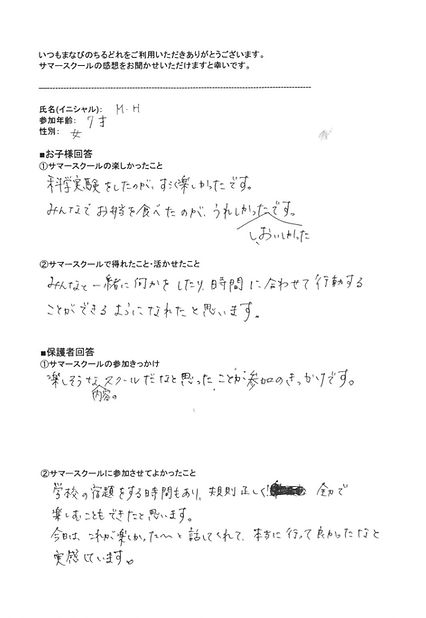 いつもまなびのちるどれをご利用いただきありがとうございます。
サマースクールの感想をお聞かせいただけますと幸いです。
氏名(イニシャル): M・H
参加年齢: 7才
性別: 女
■お子様回答
①サマースクールの楽しかったこと
科学実験をしたのが、すごく楽しかったです。
みんなでお弁当を食べたのが、うれしかったです。
し、おいしかった
②サマースクールで得れたこと・活かせたこと
みんなと一緒に何かをしたり、時間に合わせて行動する
ことができるようになれたと思います。
■保護者回答
①サマースクールの参加きっかけ
楽しそうなスクールだなと思ったことが参加のきっかけです。
内容の
②サマースクールに参加させてよかったこと
学校の宿題をする時間もあり、規則正しく! 全力で
楽しむこともできたと思います。
今日は、これが楽しかった〜と話してくれて、本当に行って良かったなと
実感しています。